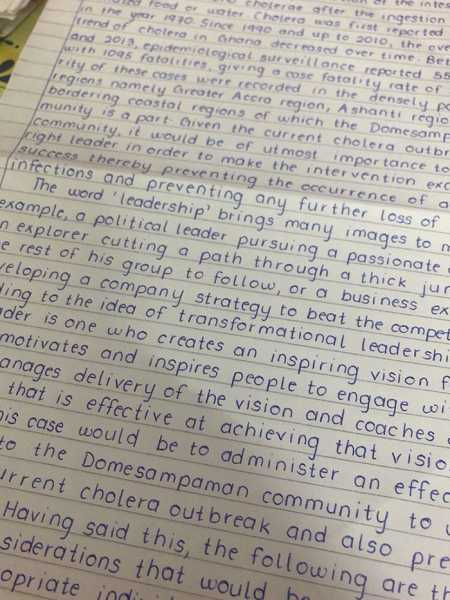 cholerae after the ingestion
nated food or water Cholera was first reported
in the year 1970. Since 1990 and up to 2010, the ove
trend of cholera in Ghana decreased over time. Bet
and 2013, epidemiological surveillance reported 55
with 1095 fatalities, giving a case fatality rate of
rity of these cases were recorded in the densely po
regions namely Greater Accra region, Ashanti regio
bordering coastal regions of which the Domesamp
munity is a part. Given the current cholera outbr
community, it would be of utmost importance to
right leader in order to make the intervention exc
success thereby preventing the occurrence of a
infections and preventing any further loss of
The word 'leadership' brings many images to m
example, a political leader pursuing a passionate
n explorer cutting a path through a thick jun
e rest of his group to follow, or a business ex
veloping a company strategy to beat the compet
ding to the idea of transformational leadershi
ader is one who creates an inspiring vision f
motivates and inspires people to engage wi
anages delivery of the vision and coaches
that is effective at achieving that visio
his case would be to administer an effec
to the Domesampaman community to
urrent cholera outbreak and also pre
Having said this, the following are th
siderations that would be
opriate indivi